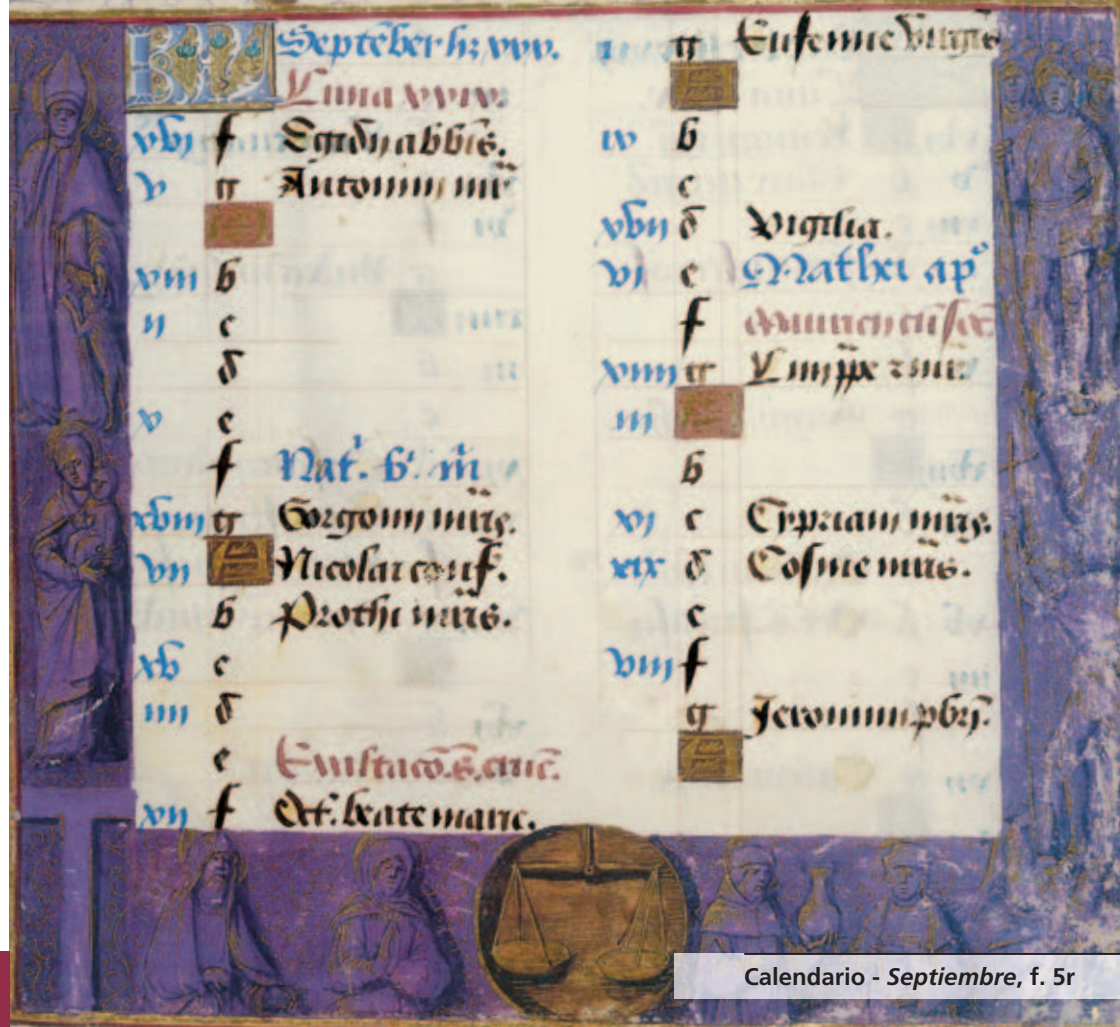 KL September h; xxx.
Luna xxix.
xvi f Egidii abbis.
v g Antonini mr
A
xiii b
ii c
d
x e
f Nat. b. m
xviii g Gorgonii mris.
vii A Nicolai conf.
b Prothi mris.
xv c
iiii d
e Exaltacō. s. cruc.
xii f Oct. beate marie.
i g Eufemie virgis
A
ix b
c
xvii d Vigilia.
vi e Mathei ap
f Mauricii cū soc
xiiii g
iii A
b
xi c Cypriani mris.
xix d Cosme mris.
e
viii f
g Jeronimi pbri.
A
Calendario - Septiembre, f. 5r